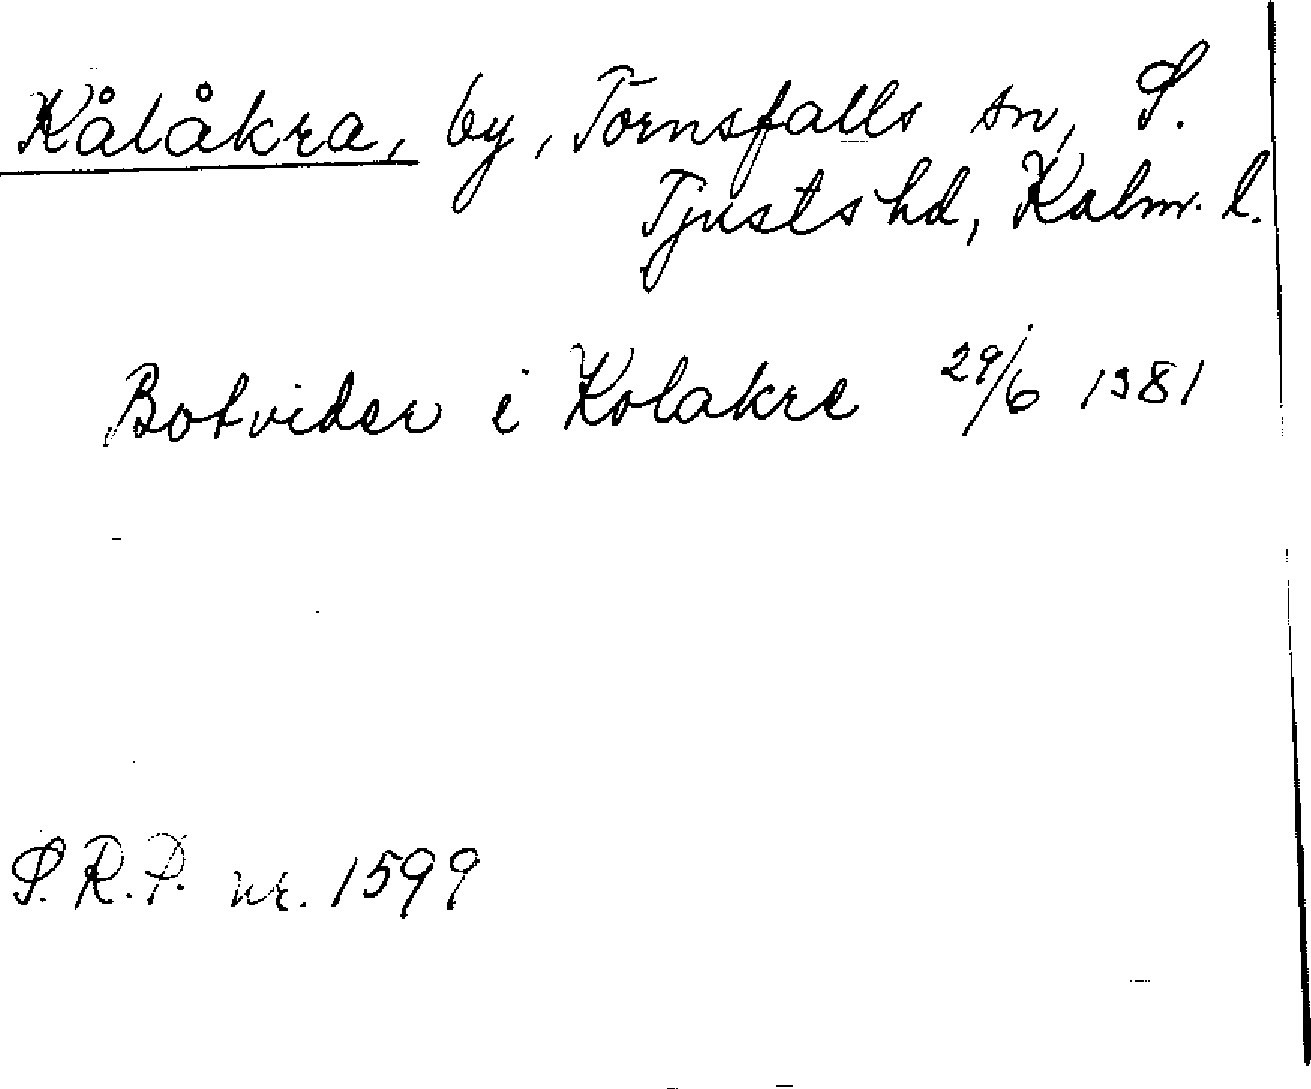 Kålåkra, by, Törnsfalls sn, S.
Tjusts hd, Kalm. l.
Botvider i Kolakre 29/6 1381
S.R.P. nr. 1599